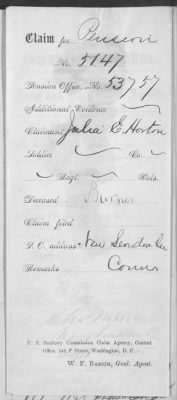 Claim for Pension
No. 5147
Pension Office, No. 53757
Additional Evidence
Claimant Julia E. Horton
Soldier Co.
Regt. Vols.
Deceased
Claim filed
P. O. address New London
Remarks Conn
U. S. Sanitary Commission Claim Agency, Central
Office, 244 F Street, Washington, D. C.
W. F. Bascom, Genl. Agent.